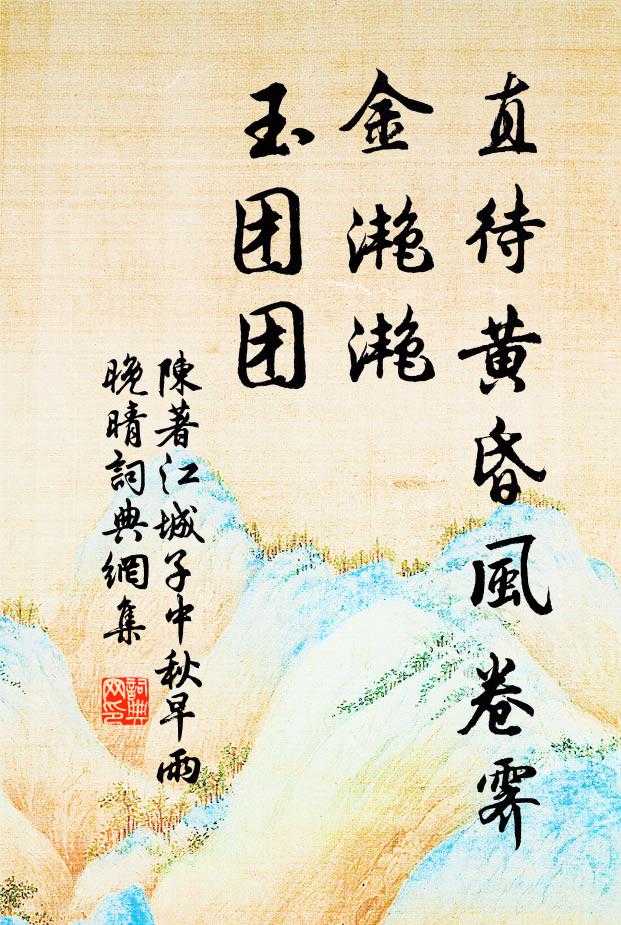 直待黄昏風卷霁
金滟滟
玉团团
陳著江城子中秋早雨
晚晴詞典網集
詞典网印